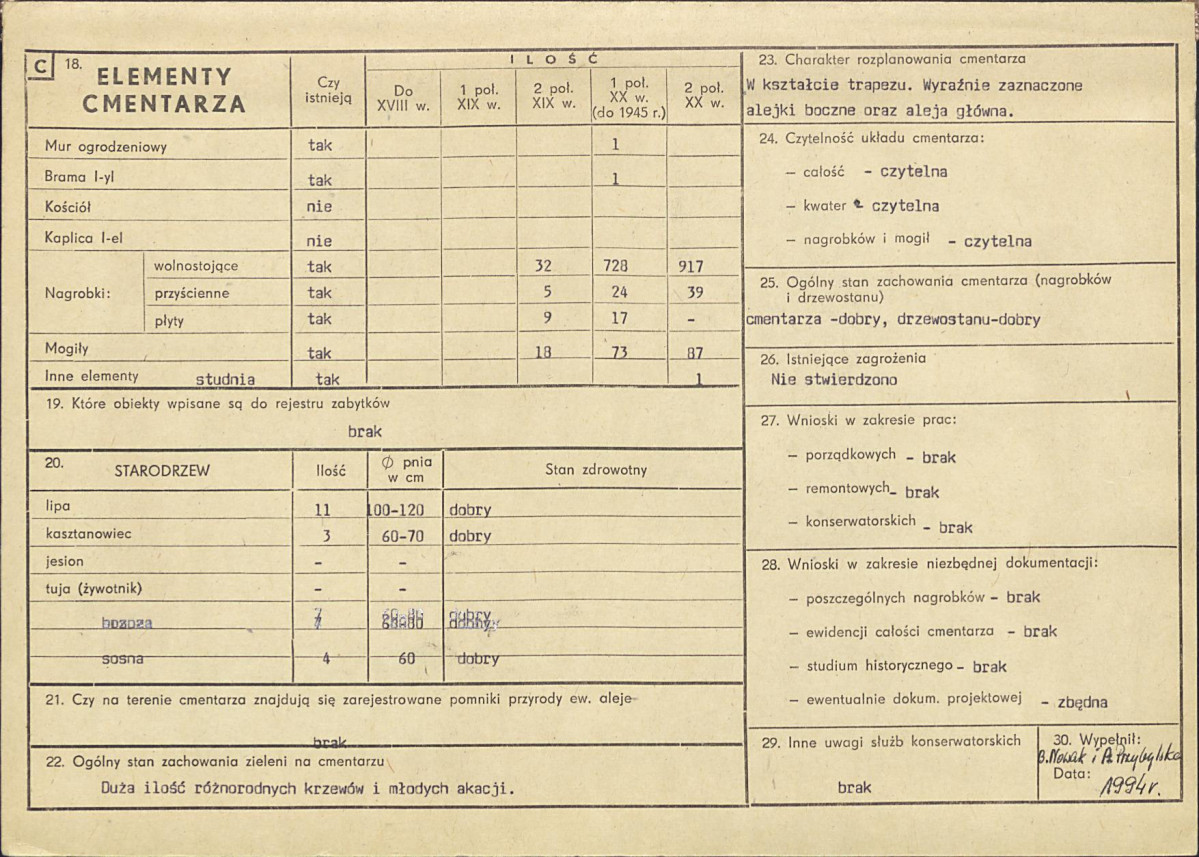 C 18. ELEMENTY CMENTARZA
Czy istnieją
I L O Ś Ć
Do XVIII w.
1 poł. XIX w.
2 poł. XIX w.
1 poł. XX w. (do 1945 r.)
2 poł. XX w.
Mur ogrodzeniowy tak 1
Brama I-yl tak 1
Kościół nie
Kaplica I-el nie
Nagrobki:
wolnostojące tak 32 728 917
przyścienne tak 5 24 39
płyty tak 9 17 -
Mogiły tak 18 73 87
Inne elementy studnia tak 1
19. Które obiekty wpisane są do rejestru zabytków
brak
20. STARODRZEW Ilość ∅ pnia w cm Stan zdrowotny
lipa 11 100-120 dobry
kasztanowiec 3 60-70 dobry
jesion - -
tuja (żywotnik) - -
7 dobry
sosna 4 60 dobry
21. Czy na terenie cmentarza znajdują się zarejestrowane pomniki przyrody ew. aleje
brak
22. Ogólny stan zachowania zieleni na cmentarzu
Duża ilość różnorodnych krzewów i młodych akacji.
23. Charakter rozplanowania cmentarza
W kształcie trapezu. Wyraźnie zaznaczone
alejki boczne oraz aleja główna.
24. Czytelność układu cmentarza:
— całość - czytelna
— kwater - czytelna
— nagrobków i mogił - czytelna
25. Ogólny stan zachowania cmentarza (nagrobków
i drzewostanu)
cmentarza -dobry, drzewostanu-dobry
26. Istniejące zagrożenia
Nie stwierdzono
27. Wnioski w zakresie prac:
— porządkowych - brak
— remontowych - brak
— konserwatorskich - brak
28. Wnioski w zakresie niezbędnej dokumentacji:
— poszczególnych nagrobków - brak
— ewidencji całości cmentarza - brak
— studium historycznego - brak
— ewentualnie dokum. projektowej - zbędna
29. Inne uwagi służb konserwatorskich
brak
30. Wypełnił:
B. Nowak i A. Przybylska
Data:
1994 r.